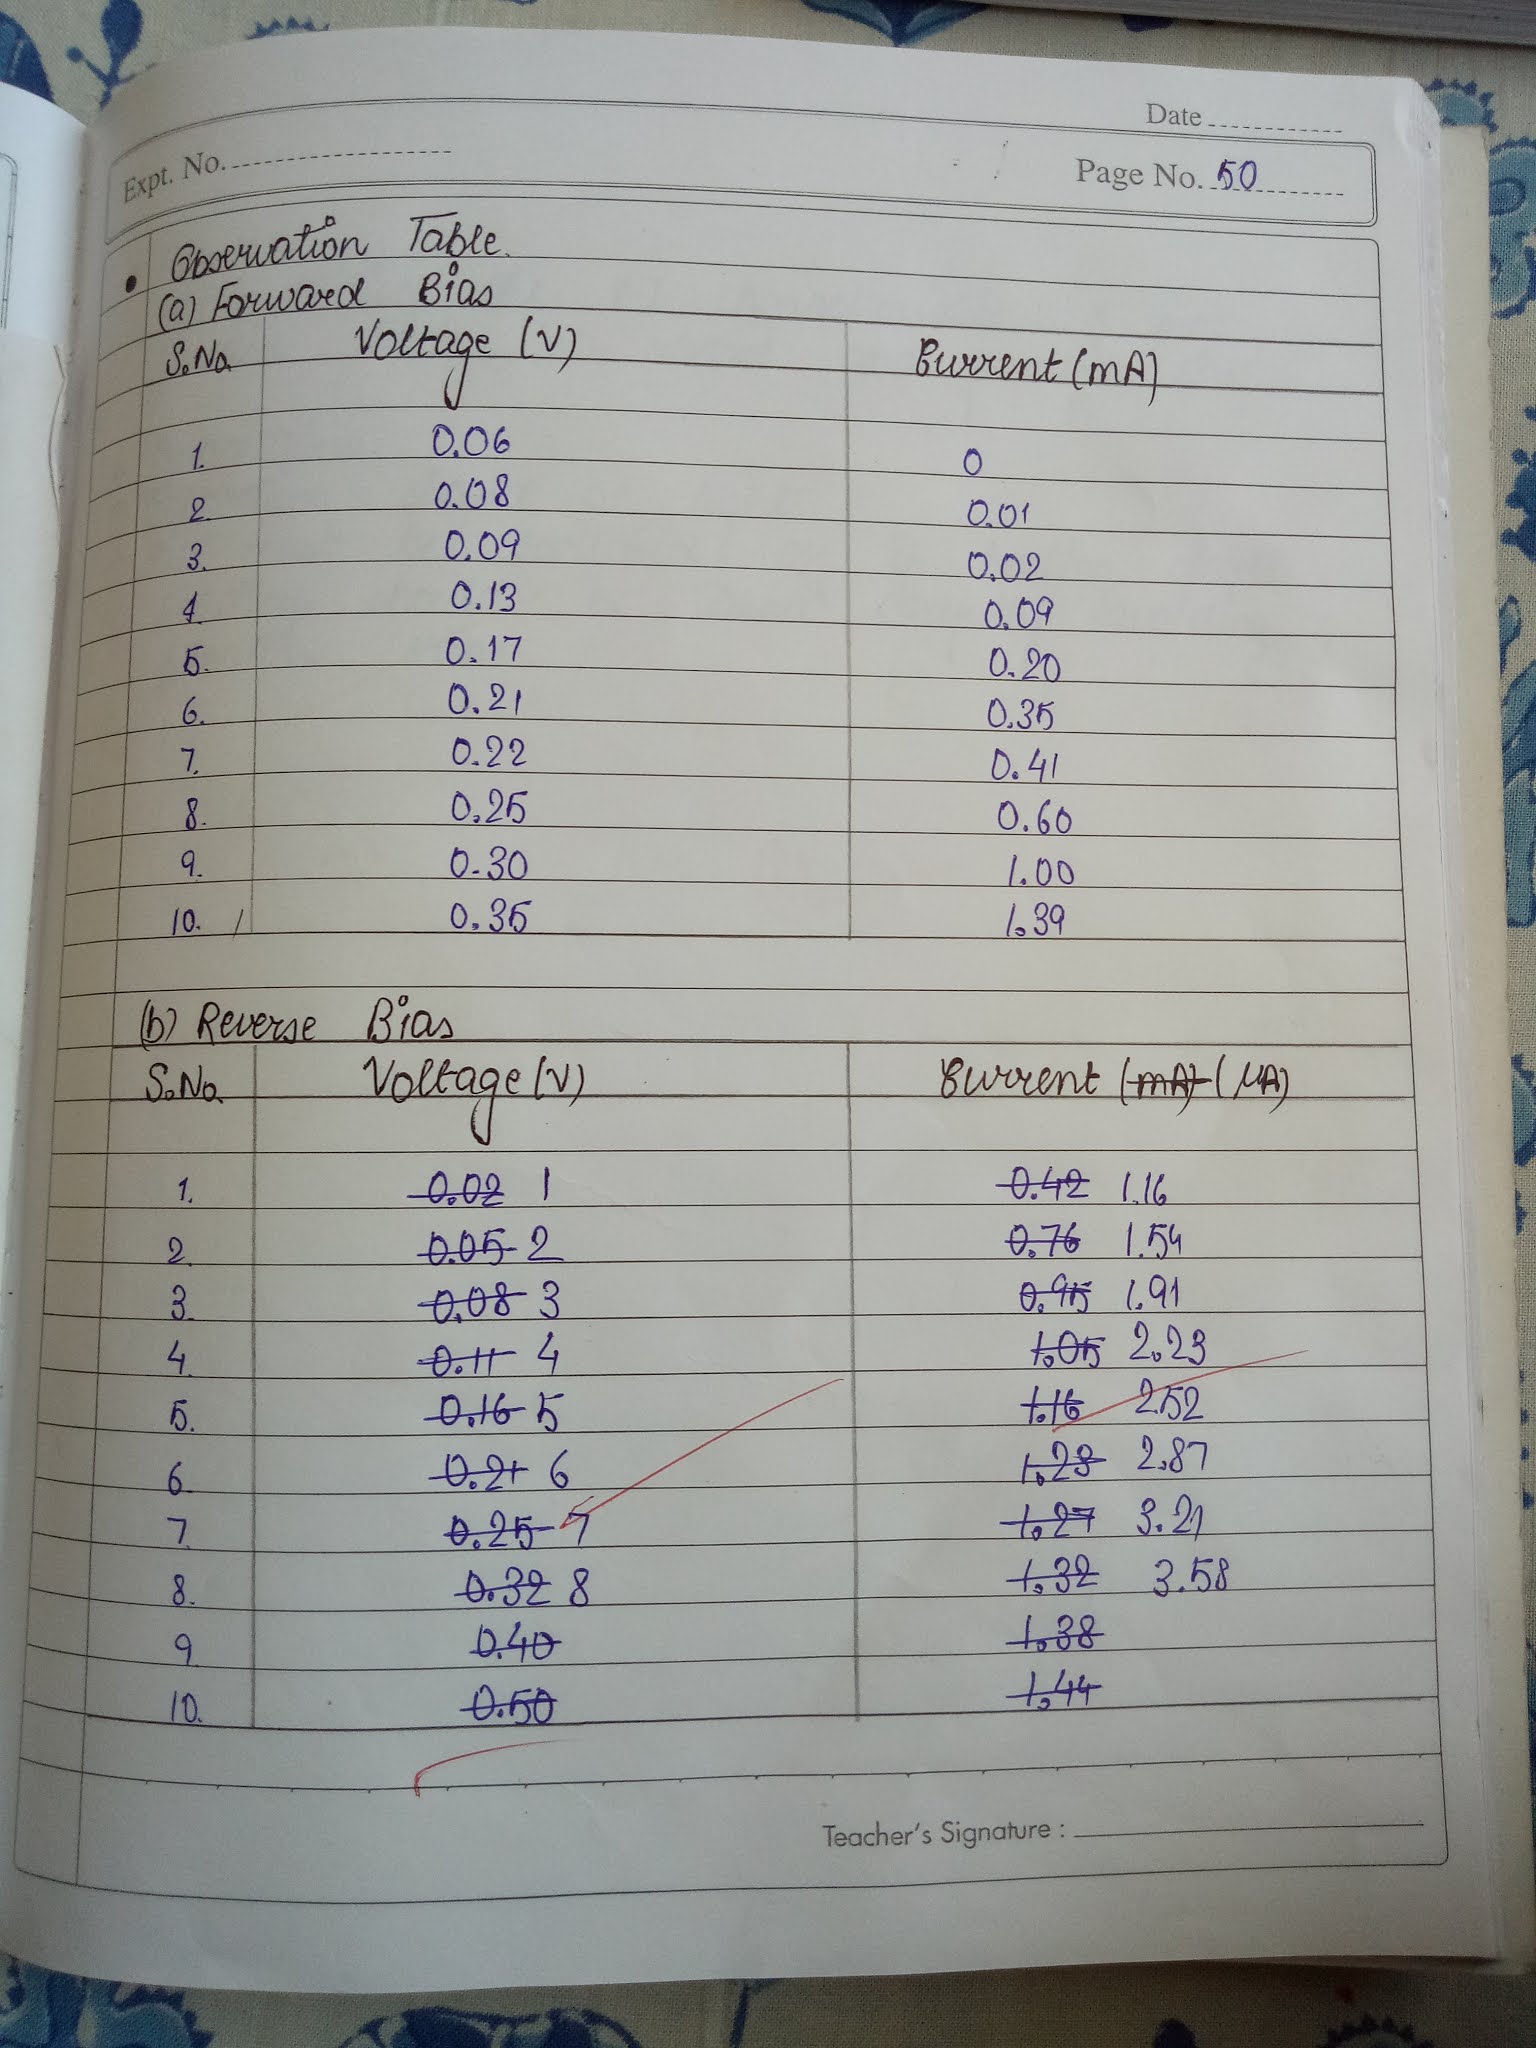 Date
Expt. No.
Page No. 50
• Observation Table.
(a) Forward Bias
S.No. Voltage (V) Current (mA)
1. 0.06 0
2. 0.08 0.01
3. 0.09 0.02
4. 0.13 0.09
5. 0.17 0.20
6. 0.21 0.35
7. 0.22 0.41
8. 0.25 0.60
9. 0.30 1.00
10. 0.35 1.39
(b) Reverse Bias
S.No. Voltage (V) Current (mA) (μA)
1. 0.02 1 0.42 1.16
2. 0.05 2 0.76 1.54
3. 0.08 3 0.95 1.91
4. 0.11 4 1.05 2.23
5. 0.16 5 1.16 2.52
6. 0.21 6 1.23 2.87
7. 0.25 7 1.27 3.21
8. 0.32 8 1.32 3.58
9 0.40 1.38
10. 0.50 1.44
Teacher's Signature :